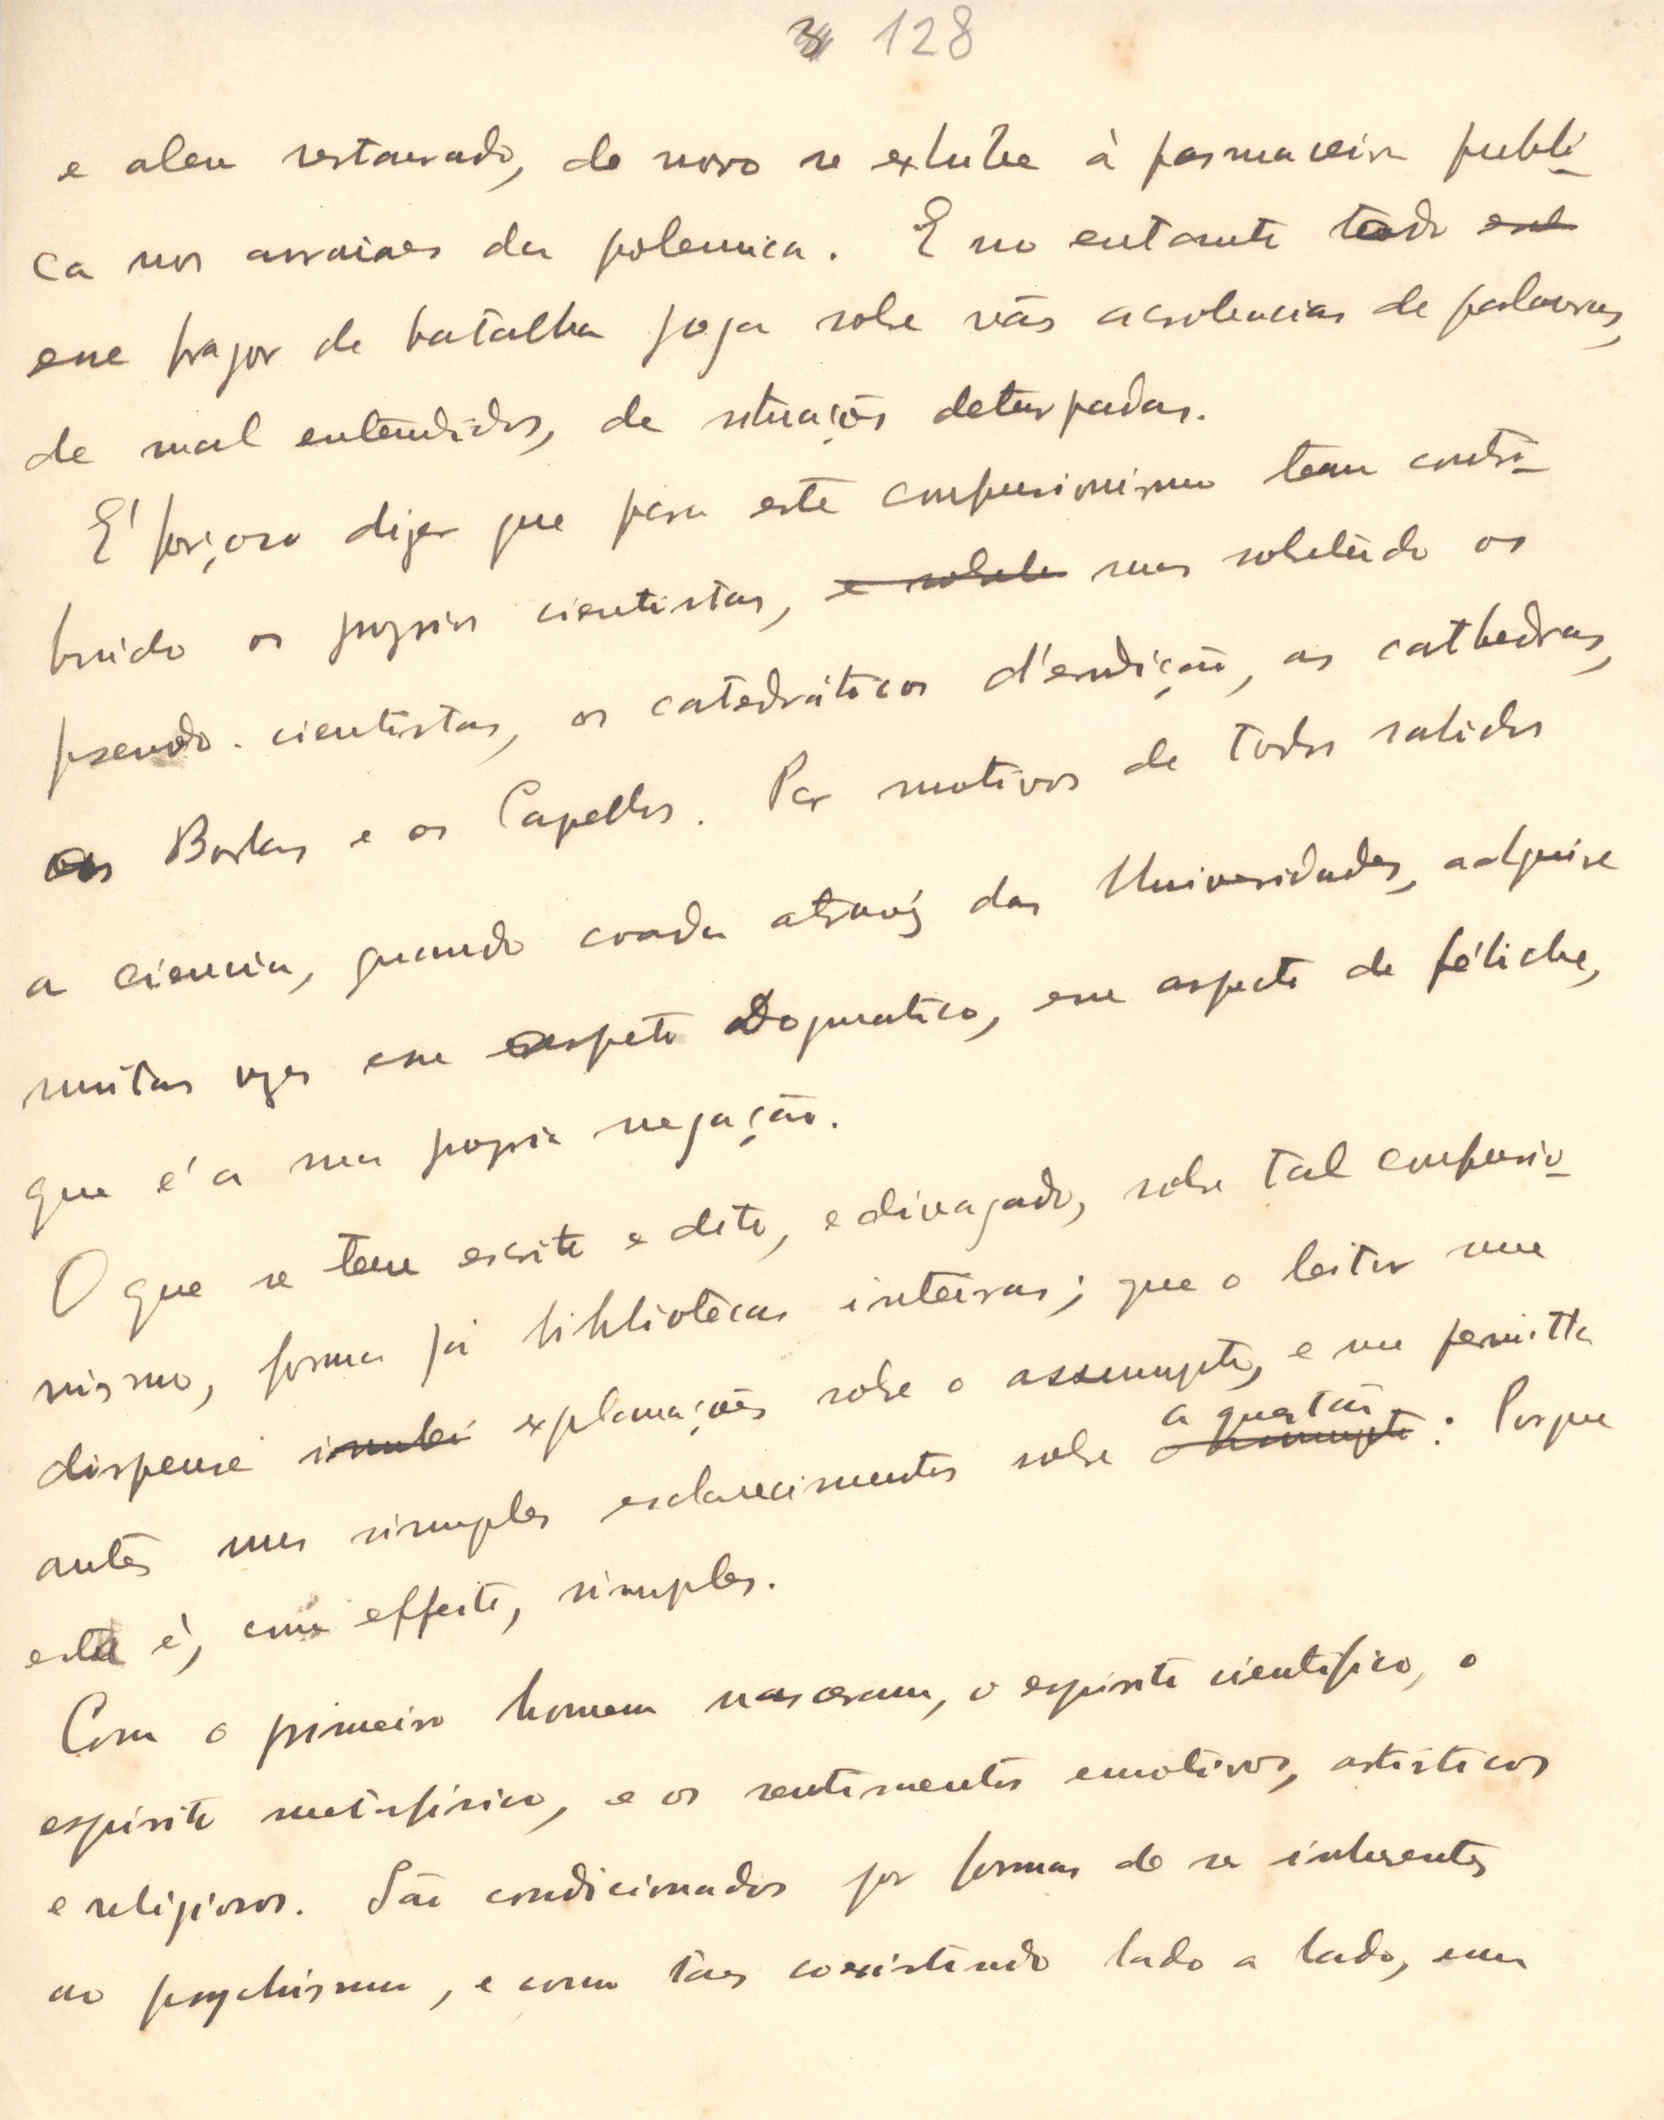 3 128
e aleu restaurado, de novo se exhibe à pasmaceira publi-
ca nos arraiaes da polemica. E no entanto todo est
esse fragor de batalha joga sobre vãs acrobacias de palavras,
de mal entendidos, de situações deturpadas.
E' forçoso dizer que para este confusionismo tem contri-
buido os proprios cientistas, e sobretu mas sobretudo os
pseudo-cientistas, os catedráticos d'erudição, as cathedras,
as Borlas e os Capellos. Por motivos de todos sabidos
a ciencia, quando coada atravéz das Universidades, adquire
muitas vezes esse aspeto Dogmatico, esse aspecto de fétiche,
que é a sua propria negação.
O que se tem escrito e dito, e divagado, sobre tal confusio-
nismo, forma já bibliotecas inteiras; que o leitor me
dispense explanações sobre o assumpto, e me permitta
a questão
antes uns simples esclarecimentos sobre o assumpto: Porque
esta é, com effeito, simples.
Com o primeiro homem nasceram, o espirito cientifico, o
espirito metafisico, e os sentimentos emotivos, artisticos
e religiosos. São condicionados por formas de ser inherentes
ao psychismo, e como taes coexistindo lado a lado, em